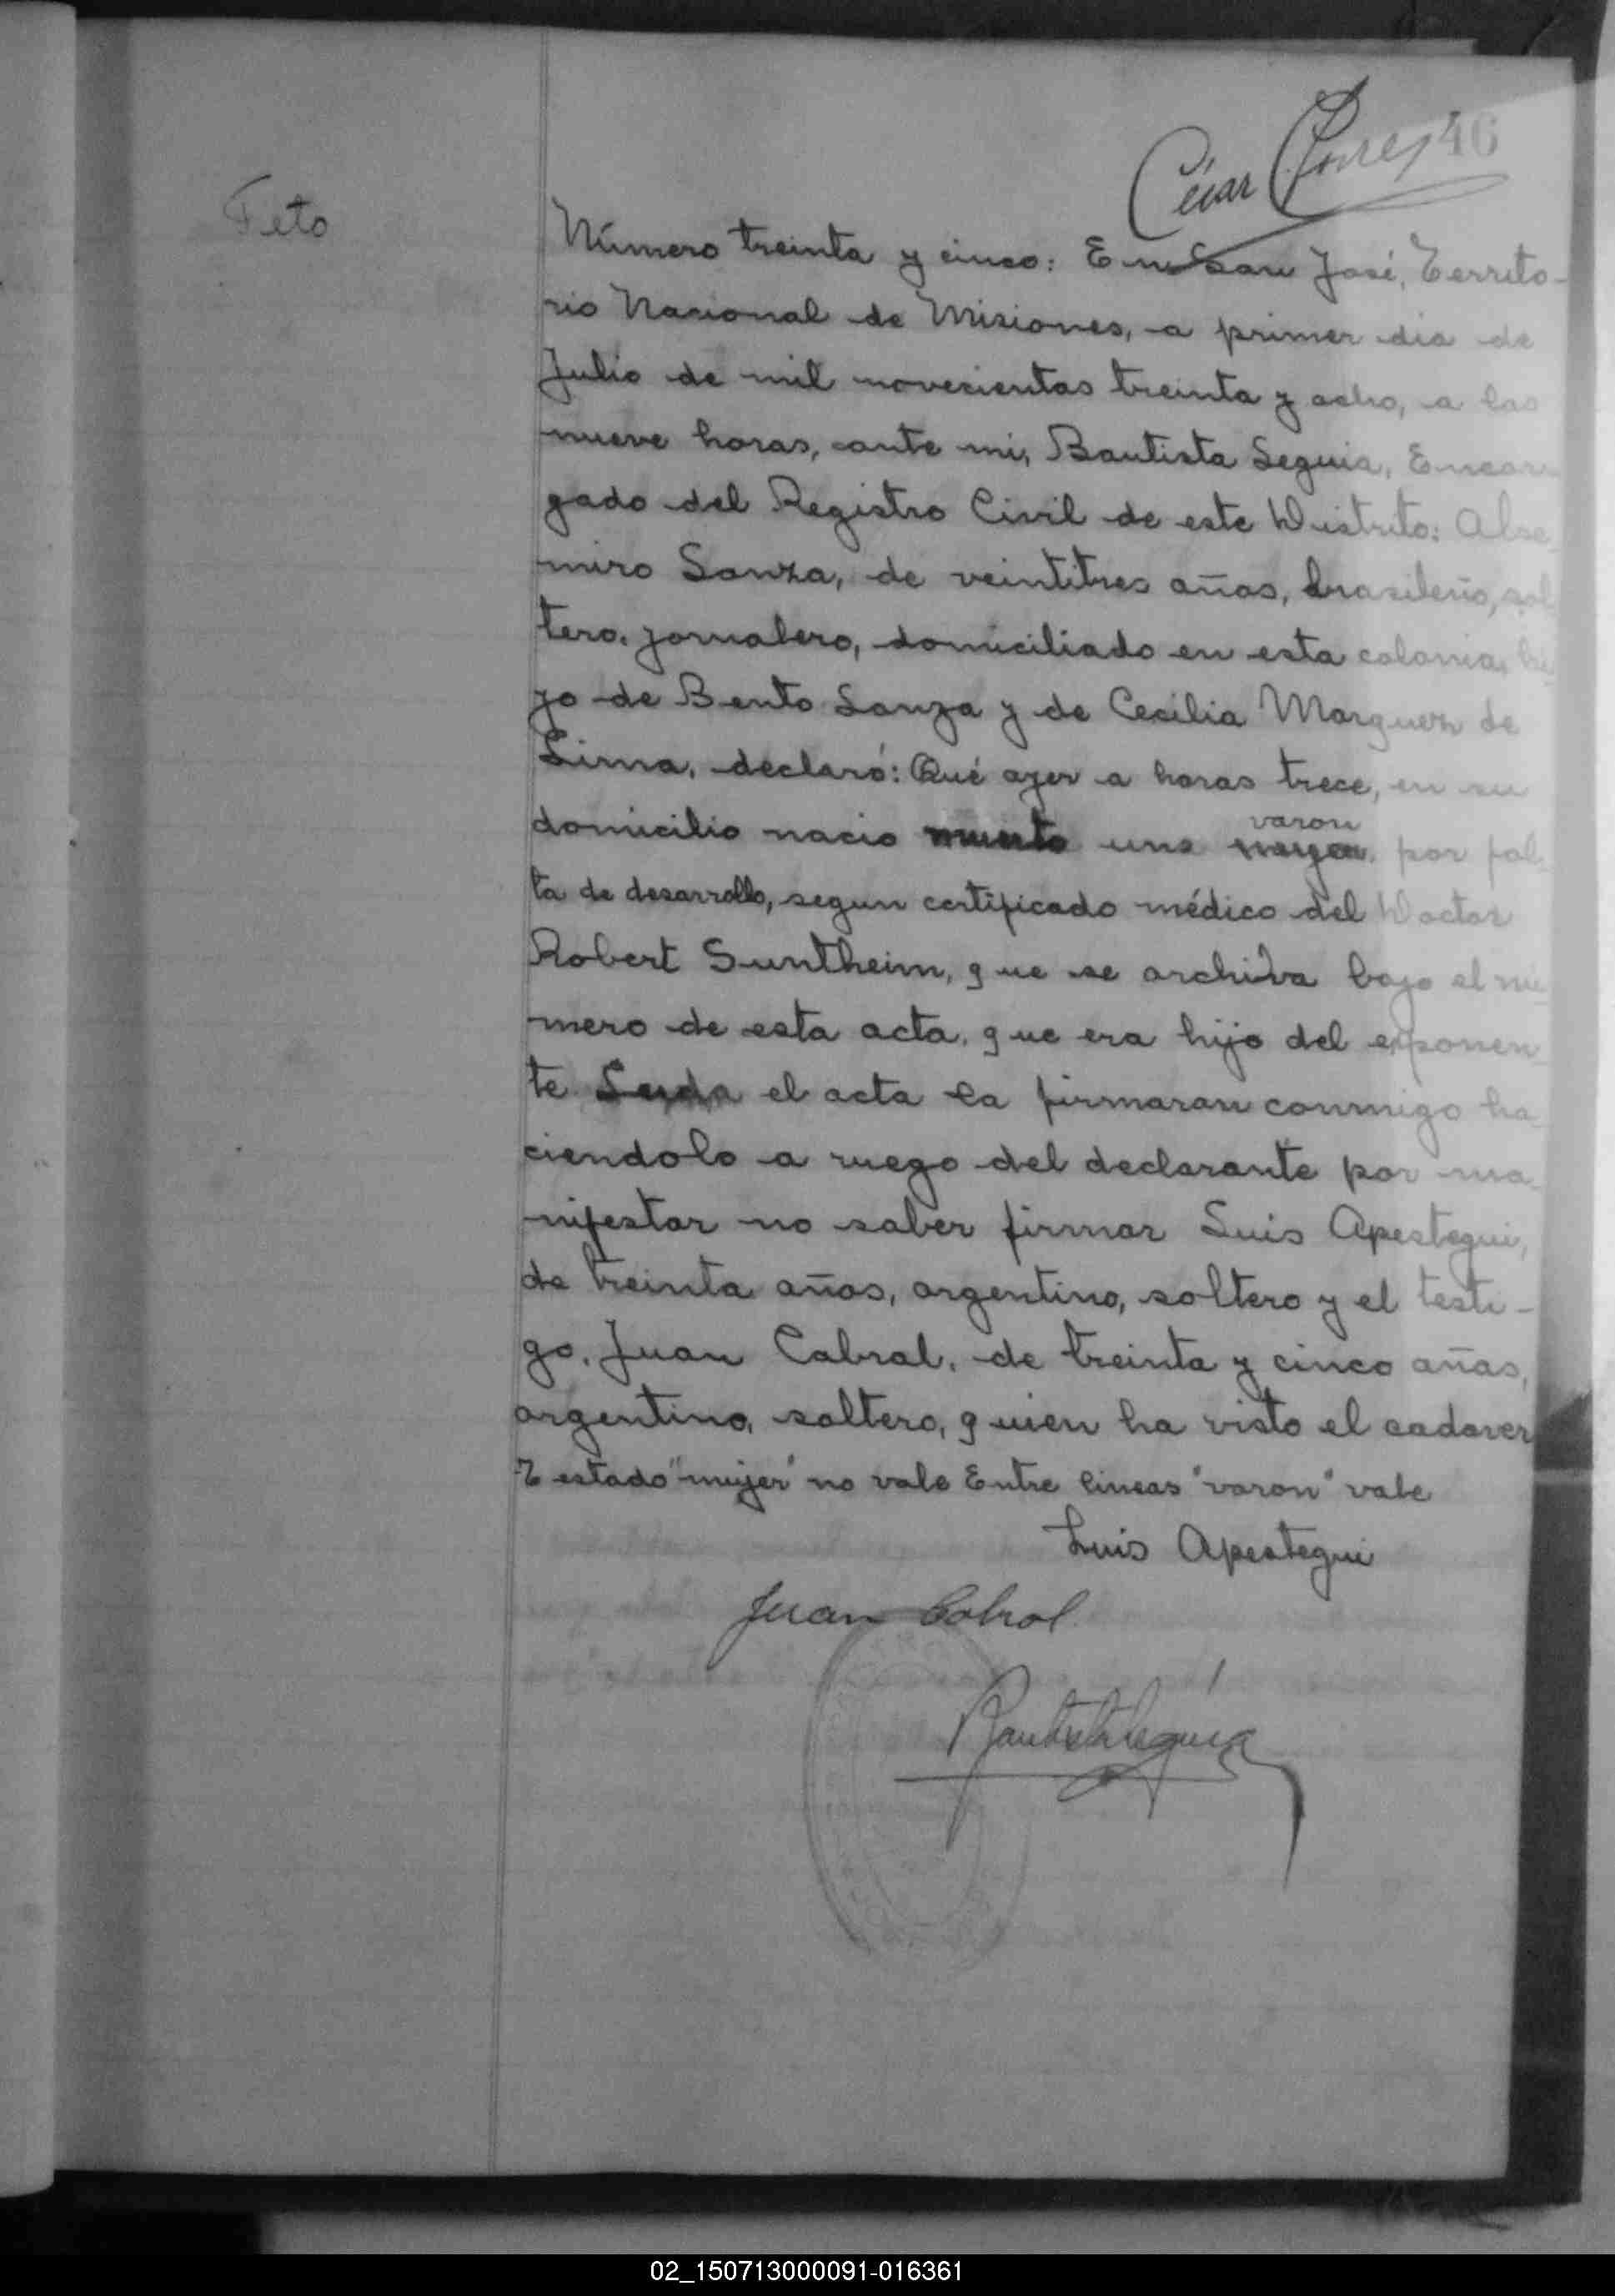 46
César
Feto
Número treinta y cinco: En San José, Territo-
rio Nacional de Misiones, a primer dia de
Julio de mil novecientos treinta y ocho, a las
nueve horas, ante mi, Bautista Seguia, Encar-
gado del Registro Civil de este Distrito: Alse-
miro Souza, de veintitres años, brasileño, sol
tero, jornalero, domiciliado en esta colonia, hi
jo de Bento Souza y de Cecilia Marquez de
Lima, declaró: Qué ayer a horas trece, en su
domicilio nacio muerto una varon por fal-
ta de desarrollo, segun certificado médico del Doctor
Robert Suntheim, que se archiva bajo el nú
mero de esta acta, que era hijo del exponen
te. Leida el acta la firmaran conmigo ha
ciendolo a ruego del declarante por ma-
nifestar no saber firmar Luis Apestegui,
de treinta años, argentino, soltero y el testi-
go, Juan Cabral, de treinta y cinco años,
argentino, soltero, quien ha visto el cadaver
Testado "mujer" no vale Entre lineas "varon" vale
Luis Apestegui
Juan Cabral
Bautista Seguia
02_150713000091-016361